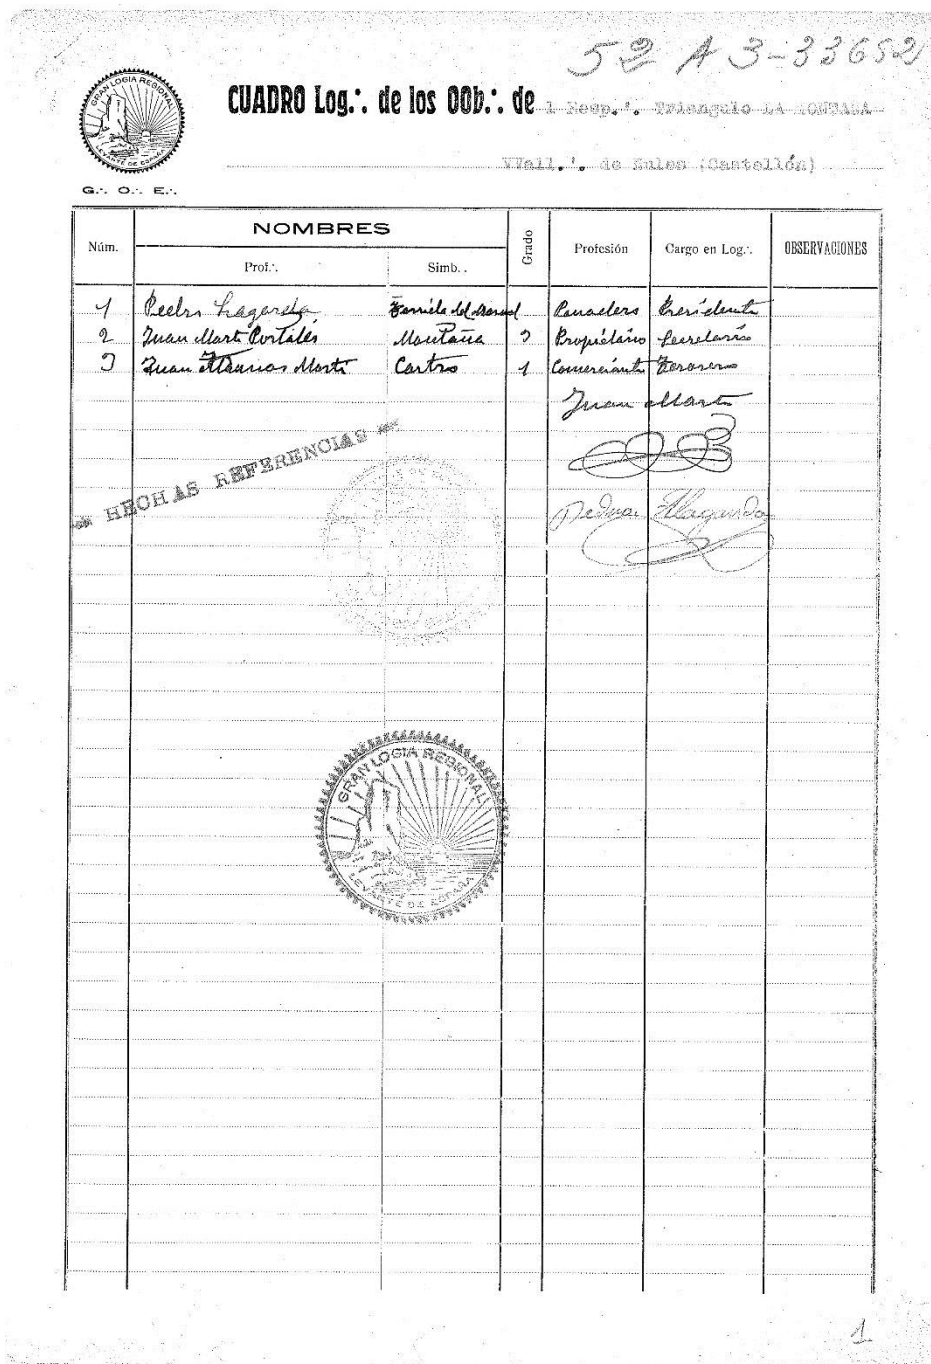 52 A 3-33652
GRAN LOGIA REGIONAL
LEVANTE DE ESPAÑA
G∴ O∴ E∴
CUADRO Log∴ de los OOb∴ de l Resp.'. Triangulo LA MONTAÑA
VVall.'. de Nules (Castellón)
Núm. NOMBRES Grado Profesión Cargo en Log∴ OBSERVACIONES
Prof∴ Simb..
1 Pedro Panadero Presidente
2 Juan Marti Portalés Montaña 3 Propietario Secretario
3 Juan Marti Castro 1 Comerciante Tesorero
Juan Marti
HECHAS REFERENCIAS
GRAN LOGIA REGIONAL
LEVANTE DE ESPAÑA
1